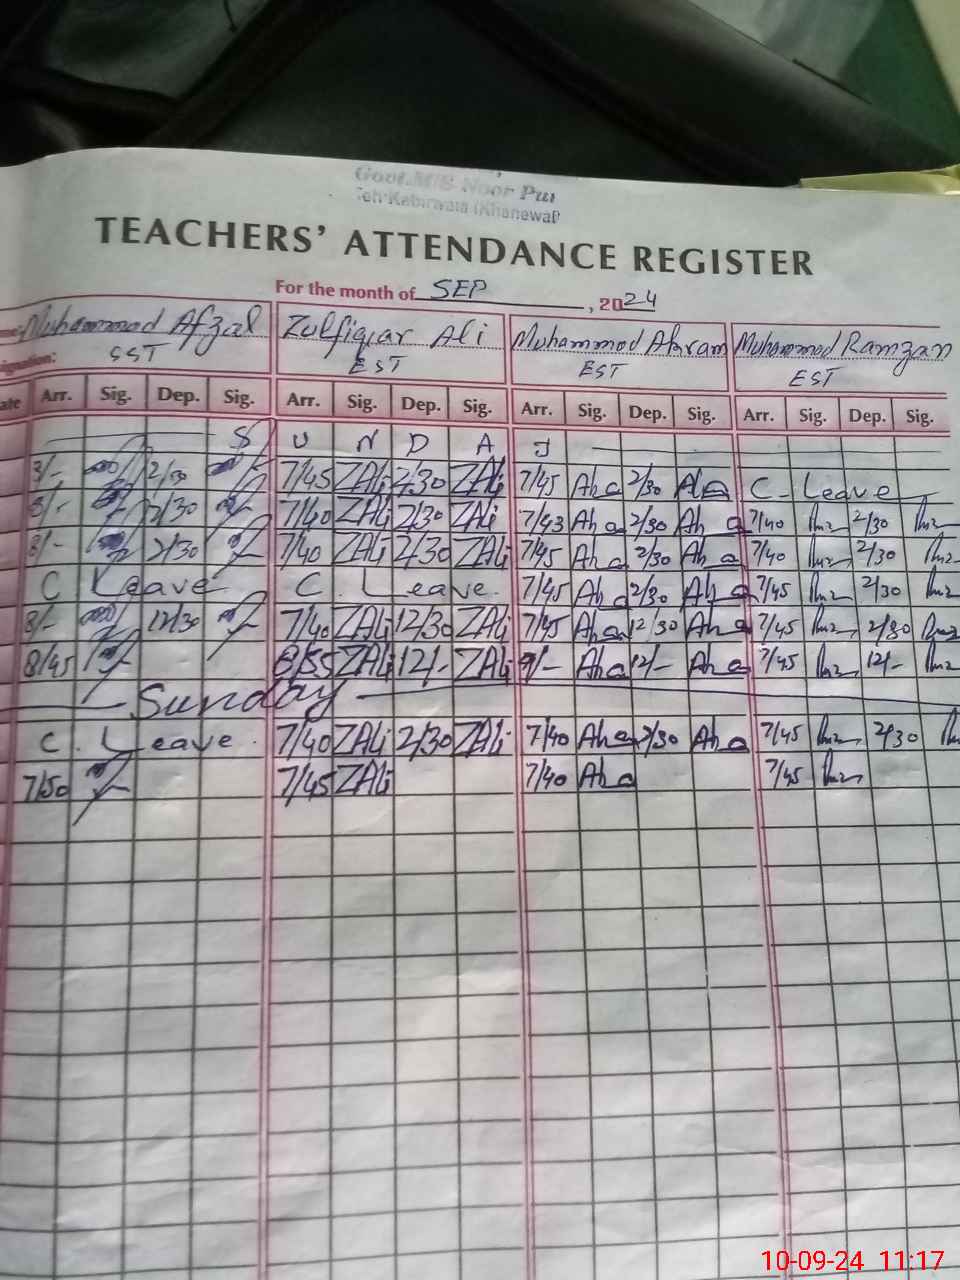 Govt. M/S Noor Pur
Teh: Kabirwala (Khanewal)
TEACHERS' ATTENDANCE REGISTER
For the month of SEP, 2024
Muhammad Afzal Zulfiqar Ali Muhammad Akram Muhammad Ramzan
ignation: SST EST EST EST
ate Arr. Sig. Dep. Sig. Arr. Sig. Dep. Sig. Arr. Sig. Dep. Sig. Arr. Sig. Dep. Sig.
S U N D A J
8/- 2/30 7/45 ZAli 2/30 ZAli 7/45 2/30 C. Leave
8/- 2/30 7/40 ZAli 2/30 ZAli 7/43 2/30 7/40 2/30
8/- 2/30 7/40 ZAli 2/30 ZAli 7/45 2/30 7/40 2/30
C Leave C. Leave 7/45 2/30 7/45 2/30
8/- 12/30 7/40 ZAli 12/30 ZAli 7/45 12/30 7/45
8/45 8/55 ZAli 12/- ZAli 9/- 12/- 7/45 12/-
Sunday
C. Leave 7/40 ZAli 2/30 ZAli 7/40 2/30 7/45 2/30
7/50 7/45 ZAli 7/40 7/45
10-09-24 11:17